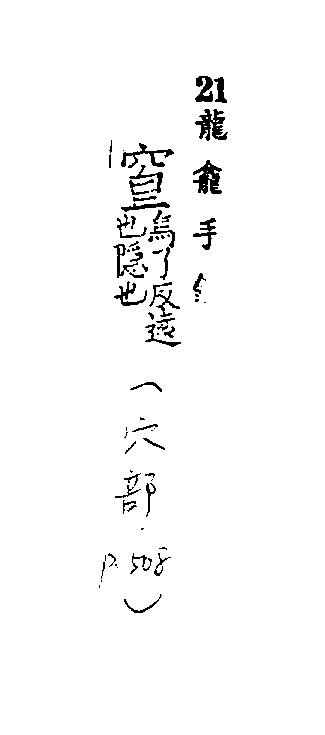 21龍龕手
烏了反遠
也隱也
(穴部.p.508)